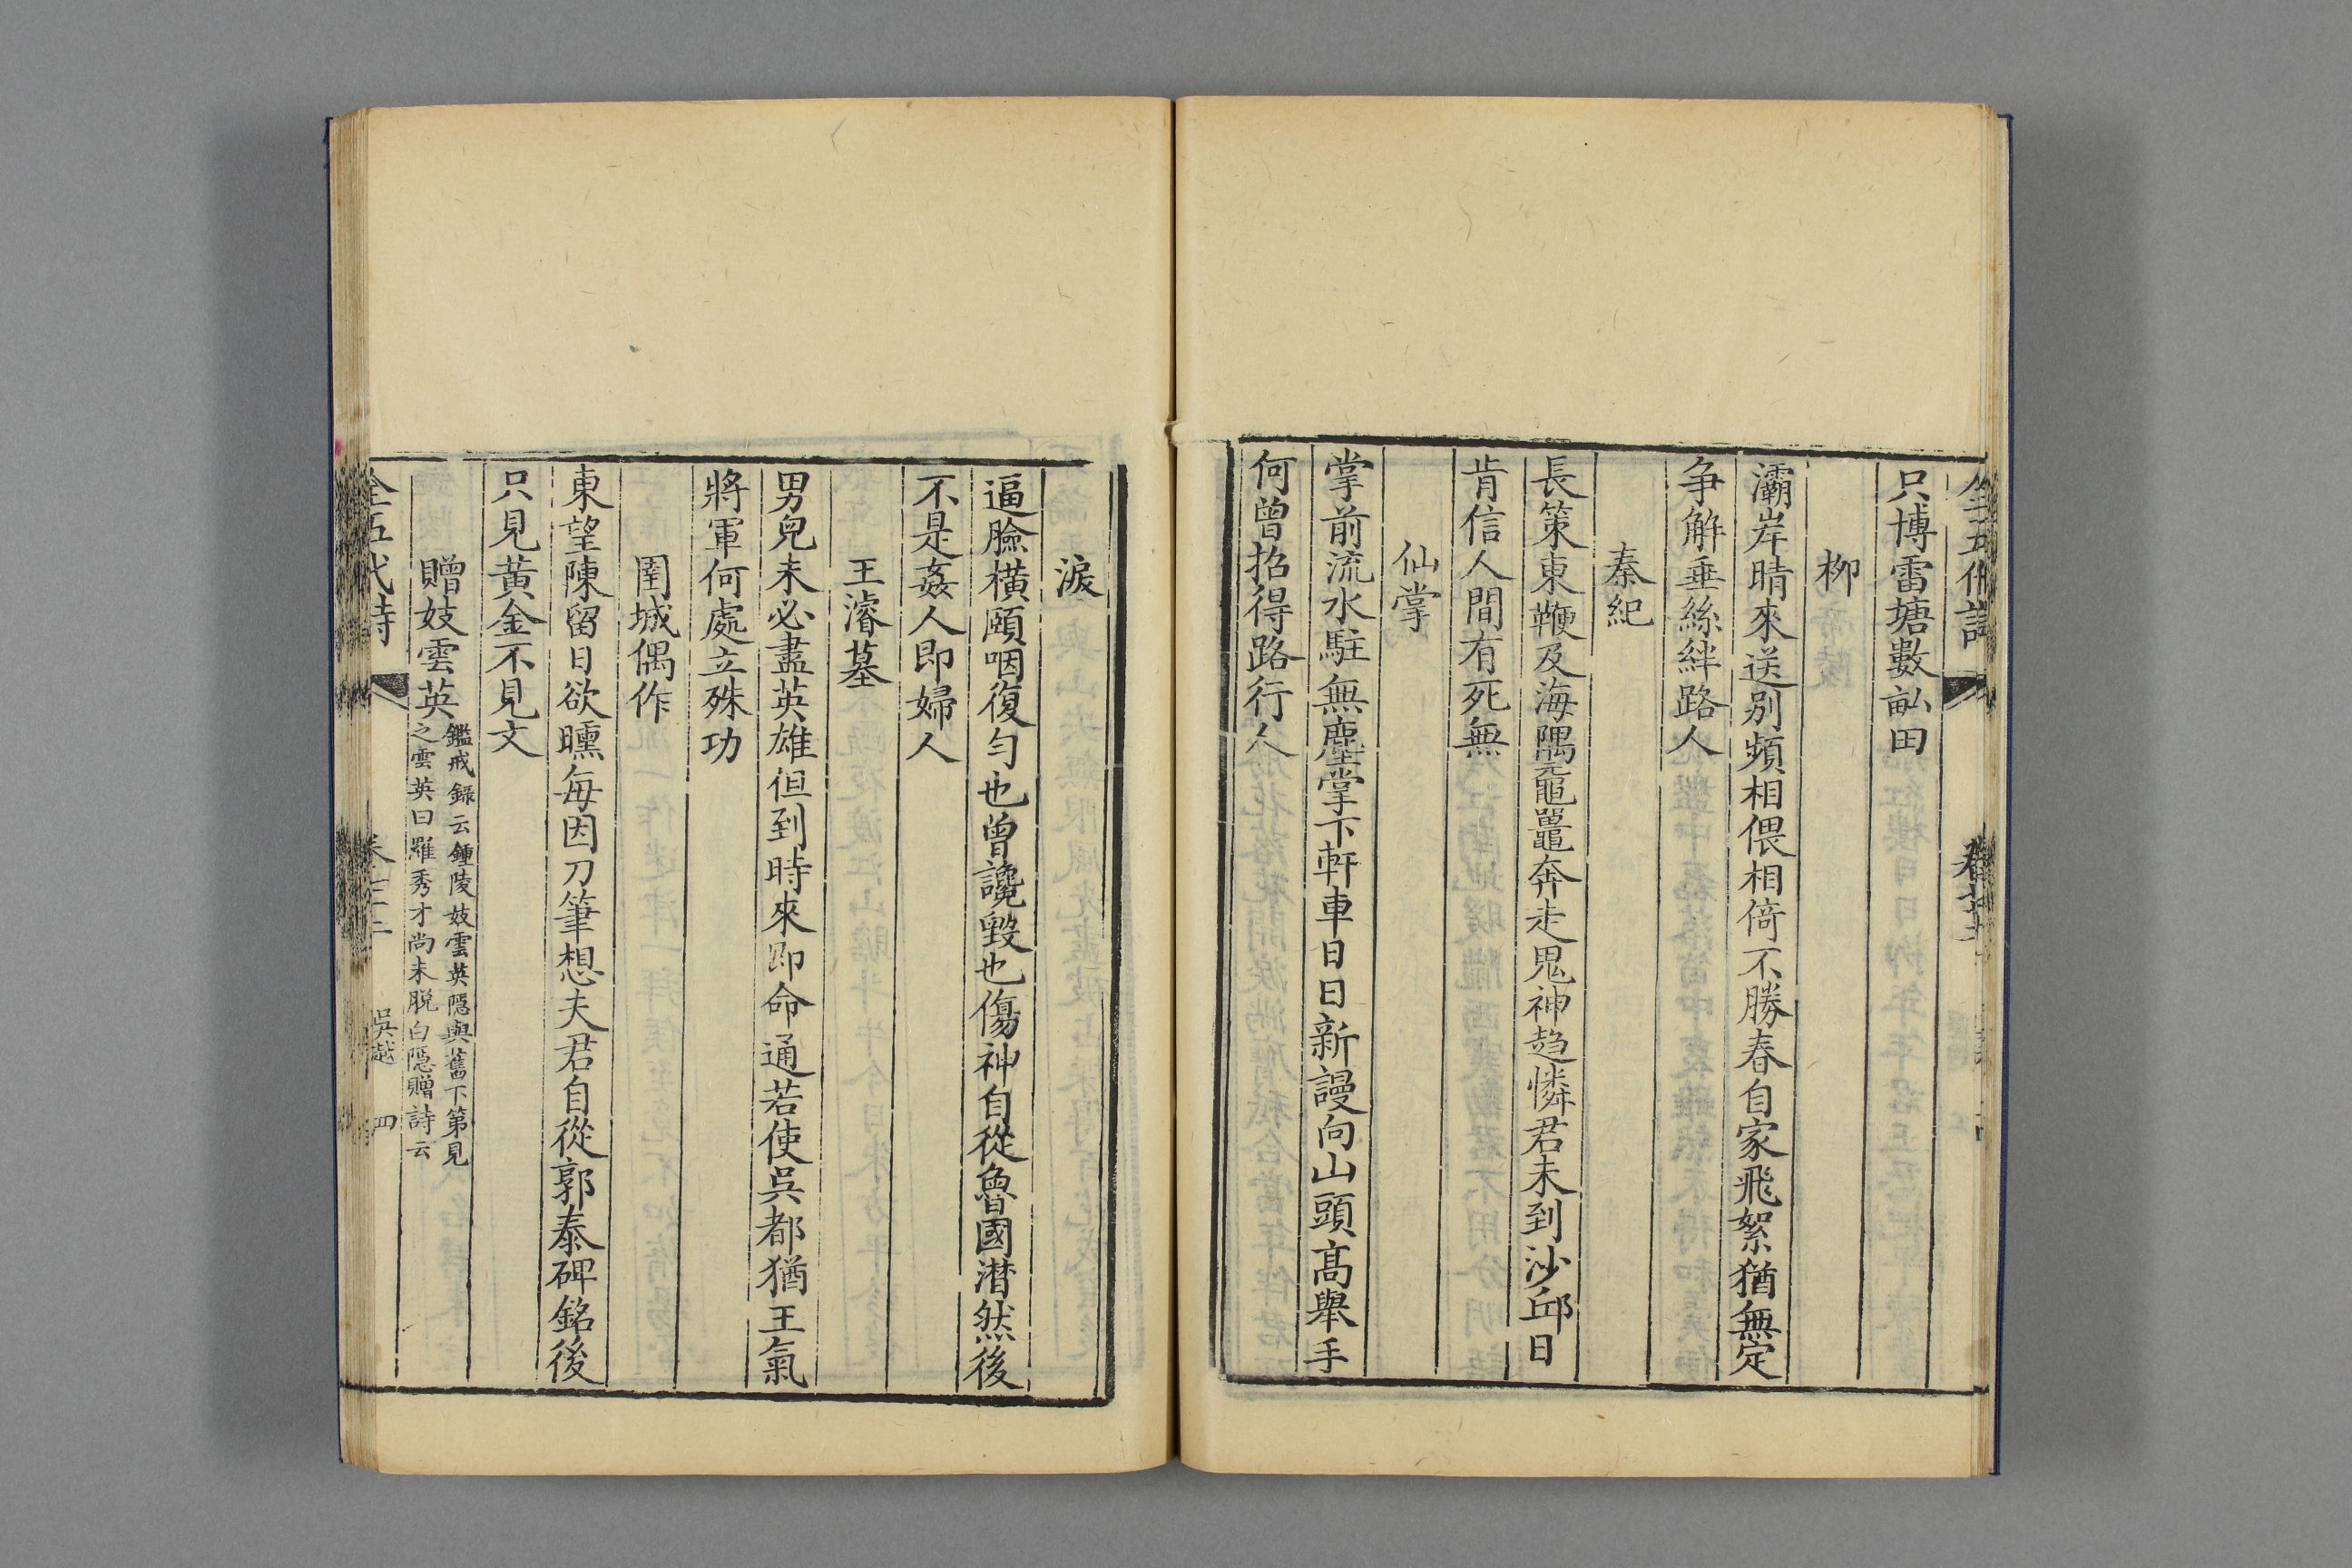 只博雷塘數畝田
柳
灞岸晴來送别頻相偎相倚不勝春自家飛絮猶無定
争解垂絲絆路人
秦紀
長策東鞭及海隅黿鼉奔走鬼神趋憐君未到沙邱日
肯信人間有死無
仙掌
掌前流水駐無塵掌下軒車日日新謾向山頭髙舉手
何曾招得路行人
淚
逼臉横頤咽復匀也曾讒毀也傷神自從魯國潜然後
不是姦人即婦人
王濬墓
男兒未必盡英雄但到時來即命通若使吳都猶王氣
將軍何處立殊功
圉城偶作
東望陳留日欲曛每因刀筆想夫君自從郭泰碑銘後
只見黄金不見文
贈妓雲英鑑戒録云鍾陵妓雲英隠與舊下第見
之雲英曰羅秀才尚未脱白隠贈詩云
全五代詩
吳越
四